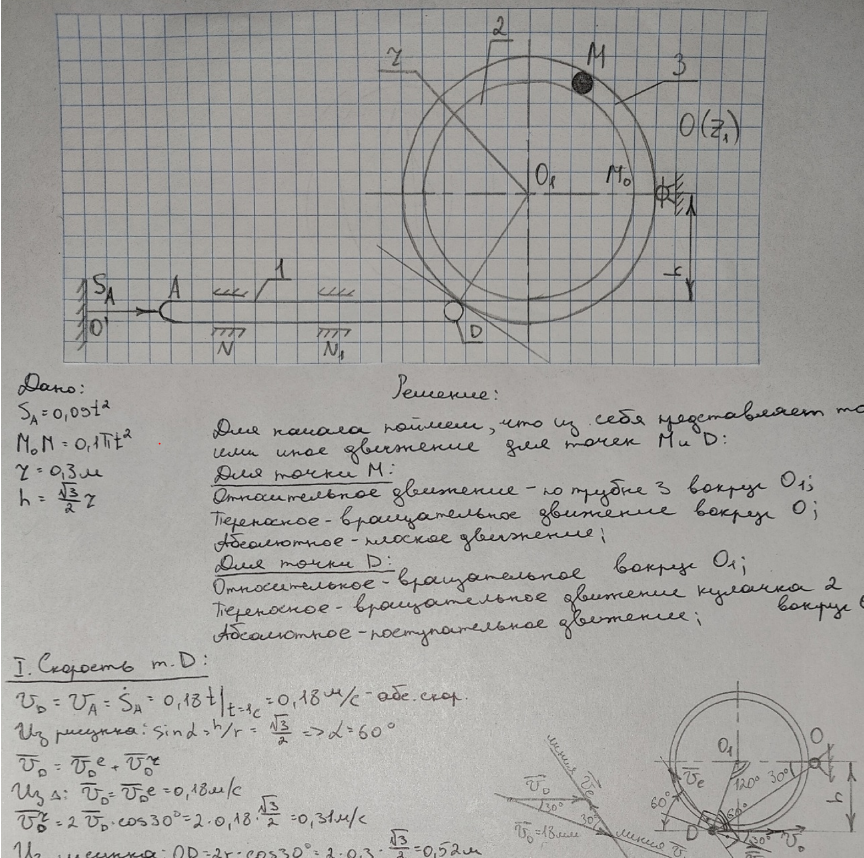 2
M
τ
3
O(Z₁)
O₁
M₀
S_A
A
1
h
O'
N
N₁
D
Дано:
Решение:
S_A = 0,09t²
M₀M = 0,1πt²
τ = 0,3м
h = √3/2 τ
Для начала поймем, что из себя представляет то
или иное движение для точек М и D:
Для точки М:
Относительное движение - по трубке 3 вокруг O₁;
Переносное - вращательное движение вокруг O;
Абсолютное - плоское движение;
Для точки D:
Относительное - вращательное вокруг O₁;
Переносное - вращательное движение кулачка 2 вокруг
Абсолютное - поступательное движение;
I. Скорость т. D:
V_D = V_A = Ṡ_A = 0,18t|_t=1c = 0,18 м/с - абс. скор.
Из рисунка: sinα = h/r = √3/2 => α = 60°
V̅_D = V̅_D^e + V̅_D^τ
Из Δ: V̅_D = V̅_D^e = 0,18м/с
V̅_D^τ = 2V̅_D · cos30° = 2 · 0,18 · √3/2 = 0,31м/с
Из рисунка: OD = 2r · cos30° = 2 · 0,3 · √3/2 = 0,52м
O₁
O
V̅e
120°
30°
h
60°
D
60°
30°
V̅_D
линия V̅e
V̅_D
30°
30°
V̅_D = 18мм
линия V̅